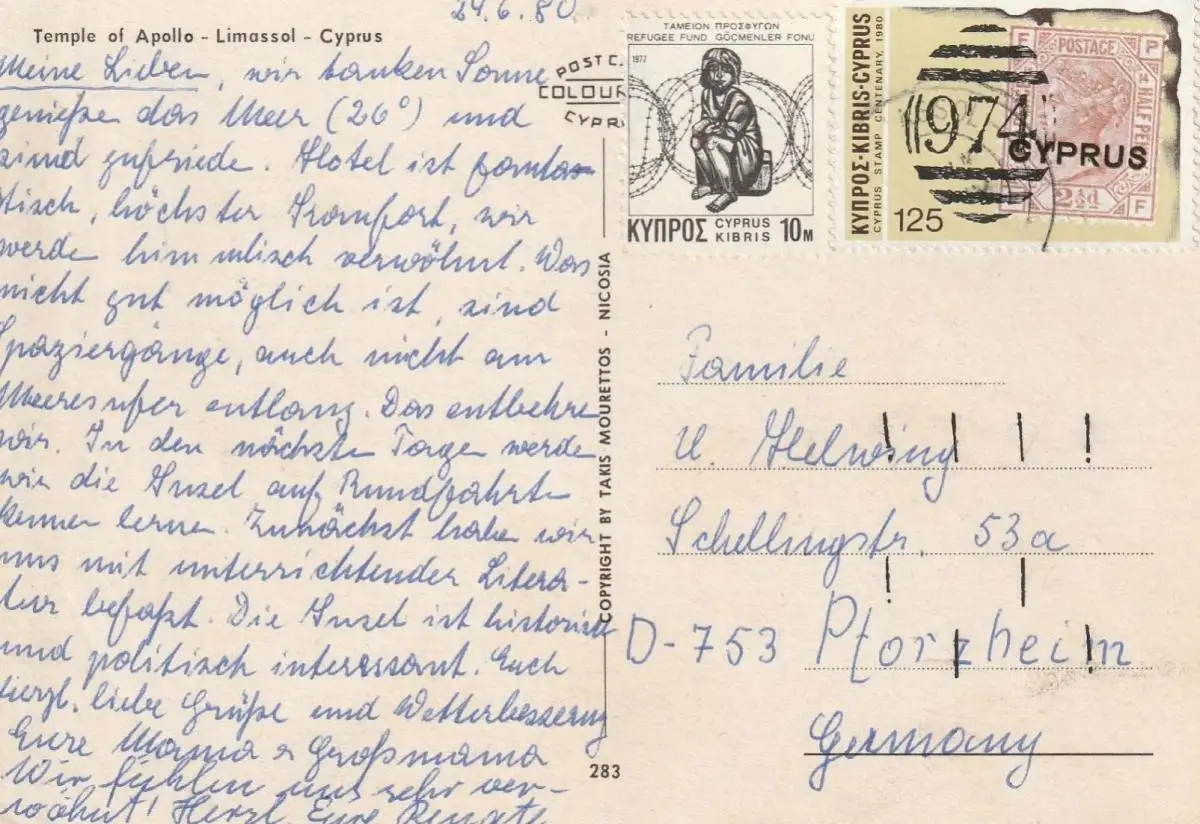 24.6.80
Temple of Apollo - Limassol - Cyprus
Meine Lieben, wir tanken Sonne
genießen das Meer (26°) und
sind zufriede. Hotel ist fantas-
tisch, höchster Komfort, wir
werde himmlisch verwöhnt. Was
nicht gut möglich ist, sind
Spaziergänge, auch nicht am
Meeresufer entlang. Das entbehre
wir. In den nächste Tage werde
wir die Insel auf Rundfahrte
kennen lernen. Zunächst habe wir
uns mit unterrichtender Litera-
tur befaßt. Die Insel ist historisch
und politisch interessant. Euch
herzl. liebe Grüße und Wetterbesserung
Eure Mama & Großmama
Wir fühlen uns sehr ver-
wöhnt! Herzl. Eure Renate
COPYRIGHT BY TAKIS MOURETTOS - NICOSIA
283
POST C
COLOUR
CYPR
ΤΑΜΕΙΟΝ ΠΡΟΣΦΥΓΩΝ
REFUGEE FUND GÖÇMENLER FONU
1977
ΚΥΠΡΟΣ CYPRUS KIBRIS 10M
ΚΥΠΡΟΣ·KIBRIS·CYPRUS
CYPRUS STAMP CENTENARY, 1980
125
974
F POSTAGE P
14
HALF PE
CYPRUS
P 2½d F
Familie
U. Helwing
Schellingstr. 53a
D-753 Pforzheim
Germany